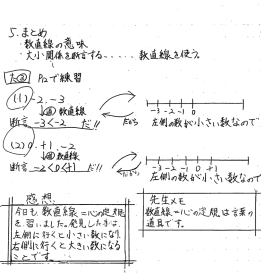 5. まとめ
数直線の意味
大小関係を断言する‥‥‥数直線を使う。
大② P2で練習
(1) -2, -3
↓ 数直線
断言 -3<-2 だ!!
だから
-3 -2 -1 0
左側の数が小さい数なので
(2) 0, +1, -2
↓ 数直線
断言 -2<0<+1 だ!!
だから
-3 -2 -1 0 +1
左側の数が小さい数なので
感想
今日も、数直線=心の定規
を習いました。発見したことは、
左側に行くと小さい数になり、
右側に行くと大きい数になる
ことです。
先生メモ
数直線=心の定規は言葉の
道具です。